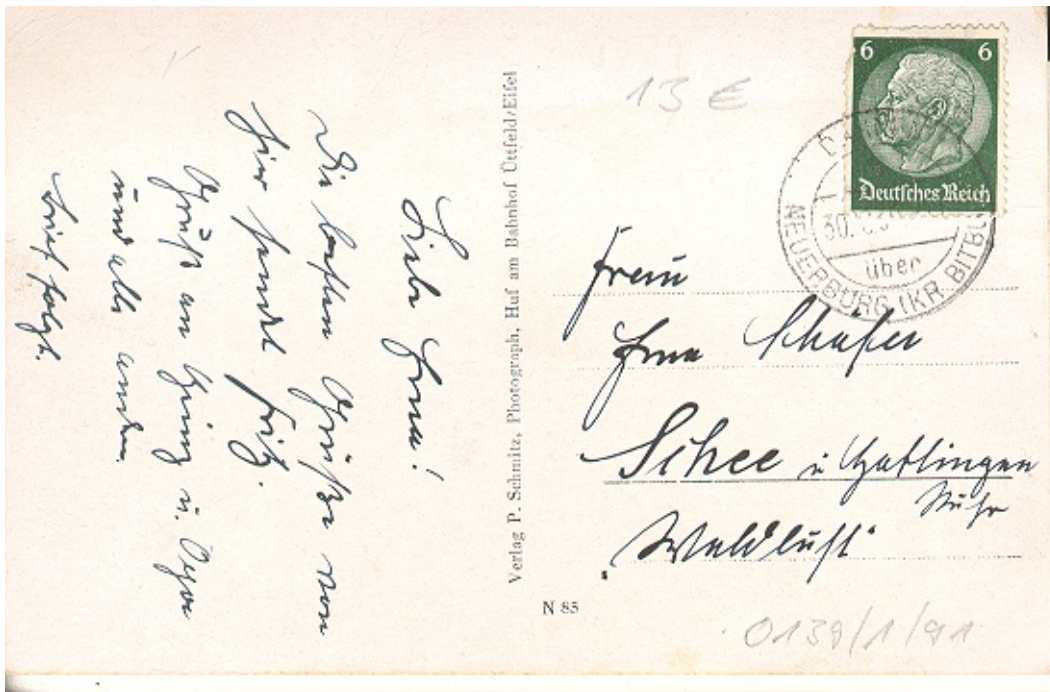 Liebe Erna!
Die besten Grüße von
hier sendet Fritz.
Grüße an
und alle andern.
Brief folgt.
Verlag P. Schmitz, Photograph, Huf am Bahnhof Üttfeld/Eifel
N 85
13 €
6 6
Deutsches Reich
30.
über
NEUERBURG (KR. BITBU
Frau
Erna Schäfer
Schee
Ruhr
"Waldlust"
0139/1/91